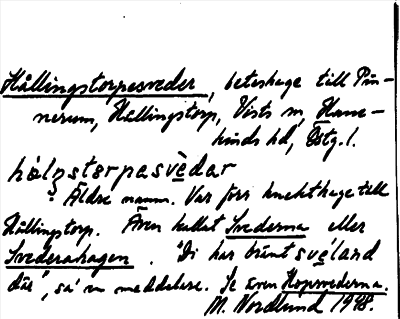 Hållingstorpesveder, beteshage till Pin-
nerum, Hållingstorp, Vists sn, Hane-
kinds hd, Östg. l.
hålŋstørpasvèdar
Äldre namn. Var förr knekthage till
Hållingstorp. Även kallat Svederna eller
Svederahagen. "Di har bränt svéland
där", sa en meddelare. Se även Hopsvederna.
M. Nordlund 1948.